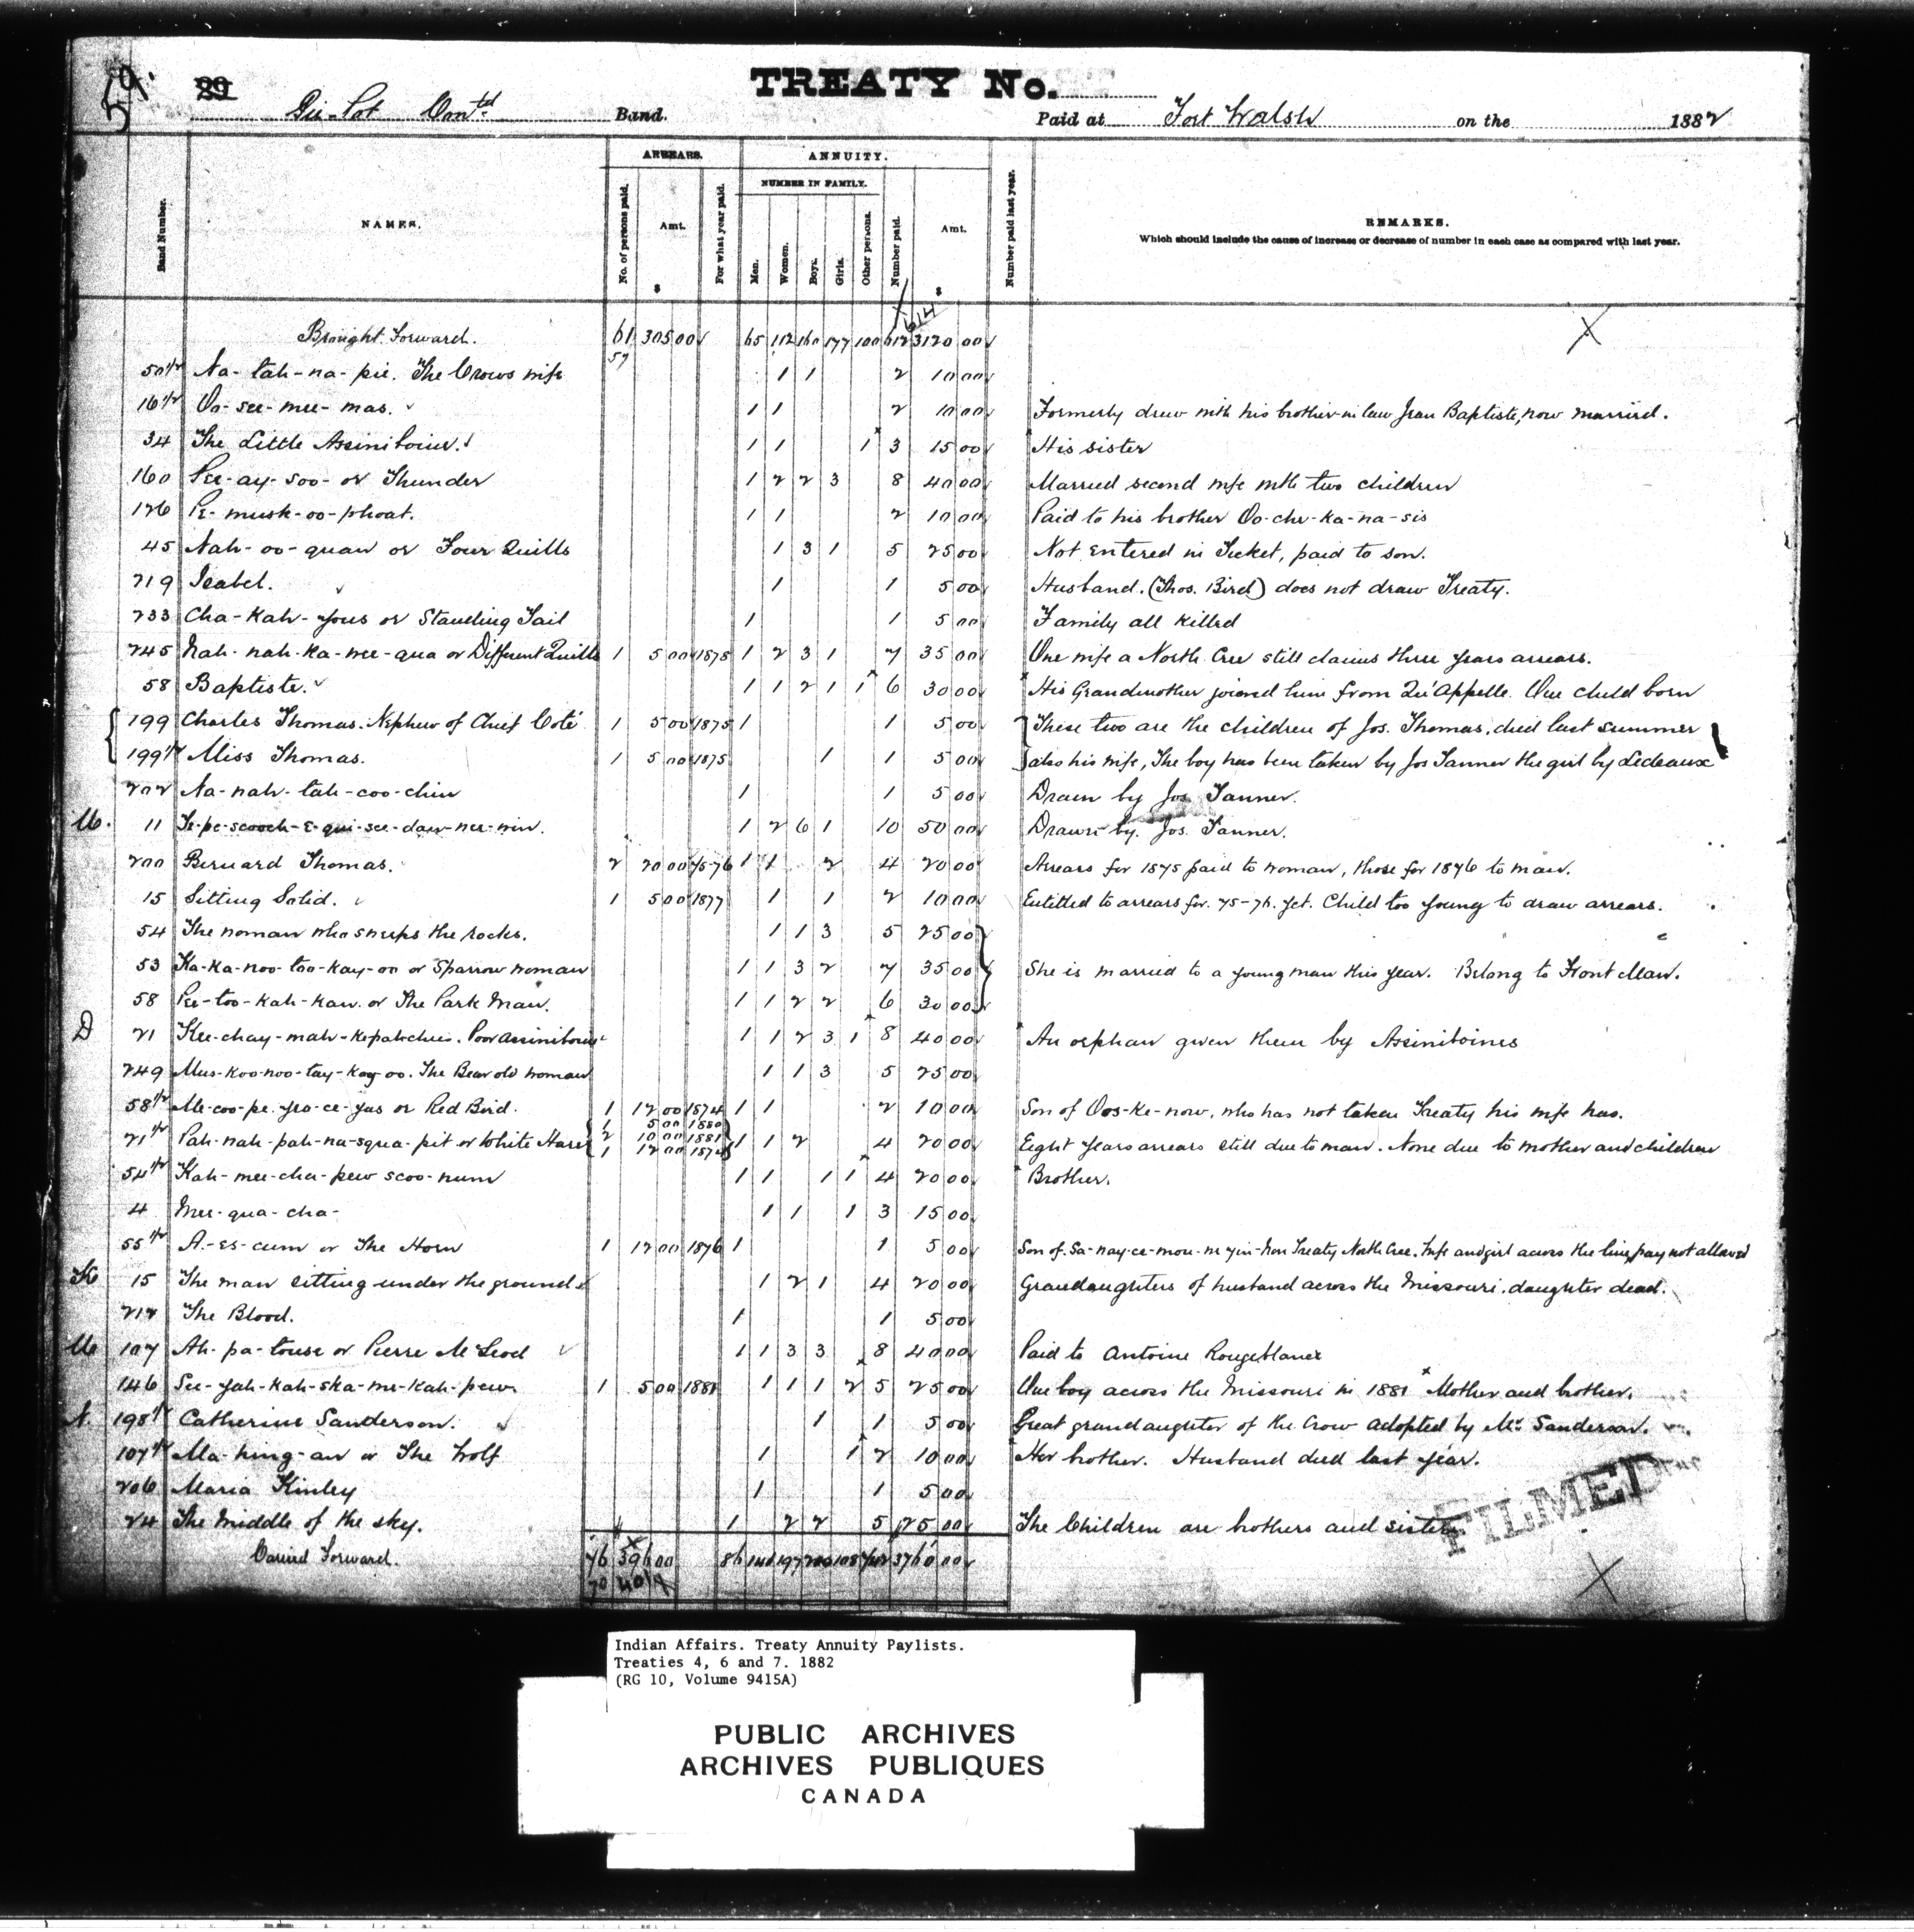 59.
29
TREATY No.
Pie-Pot Contd Band. Paid at Fort Walsh on the 1882
ARREARS. ANNUITY.
NUMBER IN FAMILY.
Band Number. NAMES. No. of persons paid. Amt. $ For what year paid. Men. Women. Boys. Girls. Other persons. Number paid. Amt. $ Number paid last year. REMARKS.
Which should include the cause of increase or decrease of number in each case as compared with last year.
614
Brought Forward. 61 305 00 65 112 160 177 100 612 3120 00 X
57
Na-tah-na-pie. The Crows wife 1 1 2 10 00
Oo-see-mee-mas. 1 1 2 10 00 Formerly drew with his brother-in-law Jean Baptiste, now married.
34 The Little Assiniboine. 1 1 1 3 15 00 His sister
160 Pee-ay-soo- or Thunder 1 2 2 3 8 40 00 Married second wife with two children
126 Pe-musk-oo-phoat. 1 1 2 10 00 Paid to his brother Oo-che-ka-na-sis
45 Nah-oo-quan or Four Quills 1 3 1 5 25 00 Not Entered in Ticket, paid to son.
219 Isabel. 1 1 5 00 Husband. (Thos. Bird) does not draw Treaty.
233 Cha-kah-yous or Standing Tail 1 1 5 00 Family all killed
245 Nah-nah-ka-nee-qua or Different Quills 1 5 00 1878 1 2 3 1 7 35 00 One wife a North Cree still claims three years arrears.
58 Baptiste. 1 1 2 1 1 6 30 00 His Grandmother joined him from Qu'Appelle. One child born
199 Charles Thomas. Nephew of Chief Coté 1 5 00 1875 1 1 5 00 These two are the children of Jos. Thomas, died last summer
199½ Miss Thomas. 1 5 00 1875 1 1 5 00 also his wife, The boy has been taken by Jos Tanner the girl by Ledeaux
202 Na-nah-tah-coo-chin 1 1 5 00 Drawn by Jos Tanner.
11 1 2 6 1 10 50 00 Drawn by. Jos. Tanner.
200 Bernard Thomas. 2 20 00 75-76 1 1 2 4 20 00 Arrears for 1875 paid to woman, those for 1876 to man.
15 Sitting Solid. 1 5 00 1877 1 1 2 10 00 Entitled to arrears for. 75-76. yet. Child too young to draw arrears.
54 The woman who sweeps the rocks. 1 1 3 5 25 00
53 Ka-ka-noo-too-kay-oo or Sparrow woman 1 1 3 2 7 35 00 She is married to a young man this year. Belong to Front Man.
58 Pee-too-kah-kaw. or The Park Man. 1 1 2 2 6 30 00
D 21 Kee-chay-mah-kepatochies. Poor Assiniboine 1 1 2 3 1 8 40 00 An orphan given them by Assiniboines
249 Mus-koo-noo-tay-kay-oo. The Bear old woman 1 1 3 5 25 00
58½ Me-coo-pe-yea-ce-yas or Red Bird. 1 12 00 1874 1 1 2 10 00 Son of Oos-ke-now, who has not taken Treaty his wife has.
1 5 00 1880
21½ Pah-nah-pah-na-squa-pit or White Hares 2 10 00 1881 1 1 2 4 20 00 Eight years arrears still due to man. None due to mother and children
1 12 00 1874
54½ Kah-mee-cha-pew scoo-num 1 1 1 1 4 20 00 Brother.
4 Mee-qua-cha- 1 1 1 3 15 00
55½ A-es-cum or The Horn 1 12 00 1876 1 1 5 00 Son of Sa-nay-ce-mou-ne-yin-Non Treaty North Cree. Wife and girl across the line, pay not allowed
15 The man sitting under the ground 1 2 1 4 20 00 Grandaughters of husband across the Missouri, daughter dead.
212 The Blood. 1 1 5 00
107 Ah-pa-touse or Pierre McLeod 1 1 3 3 8 40 00 Paid to Antoine Rougeblanex
146 See-yah-kah-ska-me-kah-pew 1 5 00 1881 1 1 1 2 5 25 00 One boy across the Missouri in 1881 Mother and brother.
N. 198½ Catherine Sanderson. 1 1 5 00 Great grandaughter of the Crow adopted by Mr. Sanderson.
107½ Ma-hing-an or The Wolf 1 1 2 10 00 Her brother. Husband died last year.
206 Maria Kinley 1 1 5 00
24 The Middle of the sky. 1 2 2 5 25 00 The Children are brothers and sisters
FILMED
Carried Forward. 76 396 00 86 140 197 108 3760 00 X
70
Indian Affairs. Treaty Annuity Paylists.
Treaties 4, 6 and 7. 1882
(RG 10, Volume 9415A)
PUBLIC ARCHIVES
ARCHIVES PUBLIQUES
CANADA